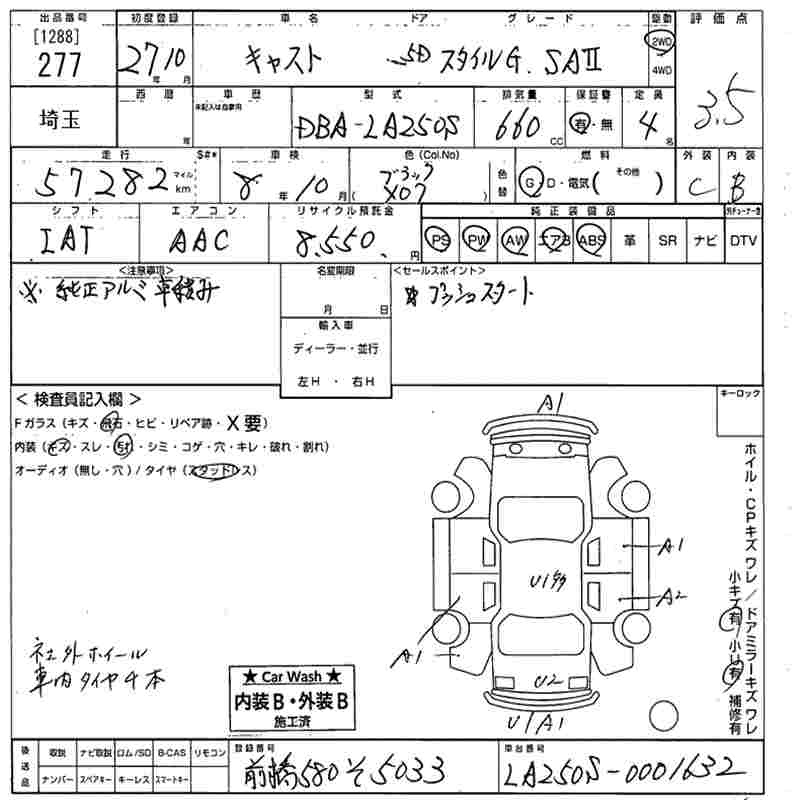 出品番号 初度登録 車名 ドア グレード 駆動 評価点
[1288]
277 27年10月 キャスト 5D スタイルG. SAⅡ 2WD 4WD 3.5
西暦 車歴 型式 排気量 保証書 定員
埼玉 年 未記入は自家用 DBA-LA250S 660cc 有・無 4名
走行 S#* 車検 色(Col.No) 燃料 外装 内装
57,282 マイル km 8年10月 (ブラック X07) 色替 G・D・電気( その他 ) C B
シフト エアコン リサイクル預託金 純正装備品
IAT AAC 8,550.円 PS PW AW エアB ABS 革 SR ナビ DTV
<注意事項> 名変期限 <セールスポイント>
※ 純正アルミ車積み 月 日 プッシュスタート
輸入車
ディーラー・並行
左H ・ 右H
< 検査員記入欄 > キーロック
Fガラス (キズ・飛石・ヒビ・リペア跡・X要)
内装 (キズ・スレ・汚れ・シミ・コゲ・穴・キレ・破れ・割れ)
オーディオ (無し・穴) / タイヤ (スタッドレス)
A1
A1
U1多々
A2
A1
U2
U1/A1
ホイル・CPキズ ワレ / ドアミラーキズ ワレ
小キズ有 / 小U有 補修有
社外ホイール
車内タイヤ4本
★ Car Wash ★
内装B・外装B
施工済
後送品 取説 ナビ取説 ロム/SD B-CAS リモコン 登録番号 車台番号
ナンバー スペアキー キーレス スマートキー 前橋580そ5033 LA250S-0001632